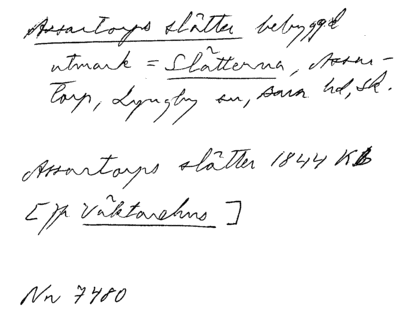 Assartorps slätter bebyggd
utmark = Slätterna, Assar-
torp, Lyngby sn, Bara hd, Sk.
Assartorps slätter 1844 KB
[jf Väktarehus]
Nn 7480